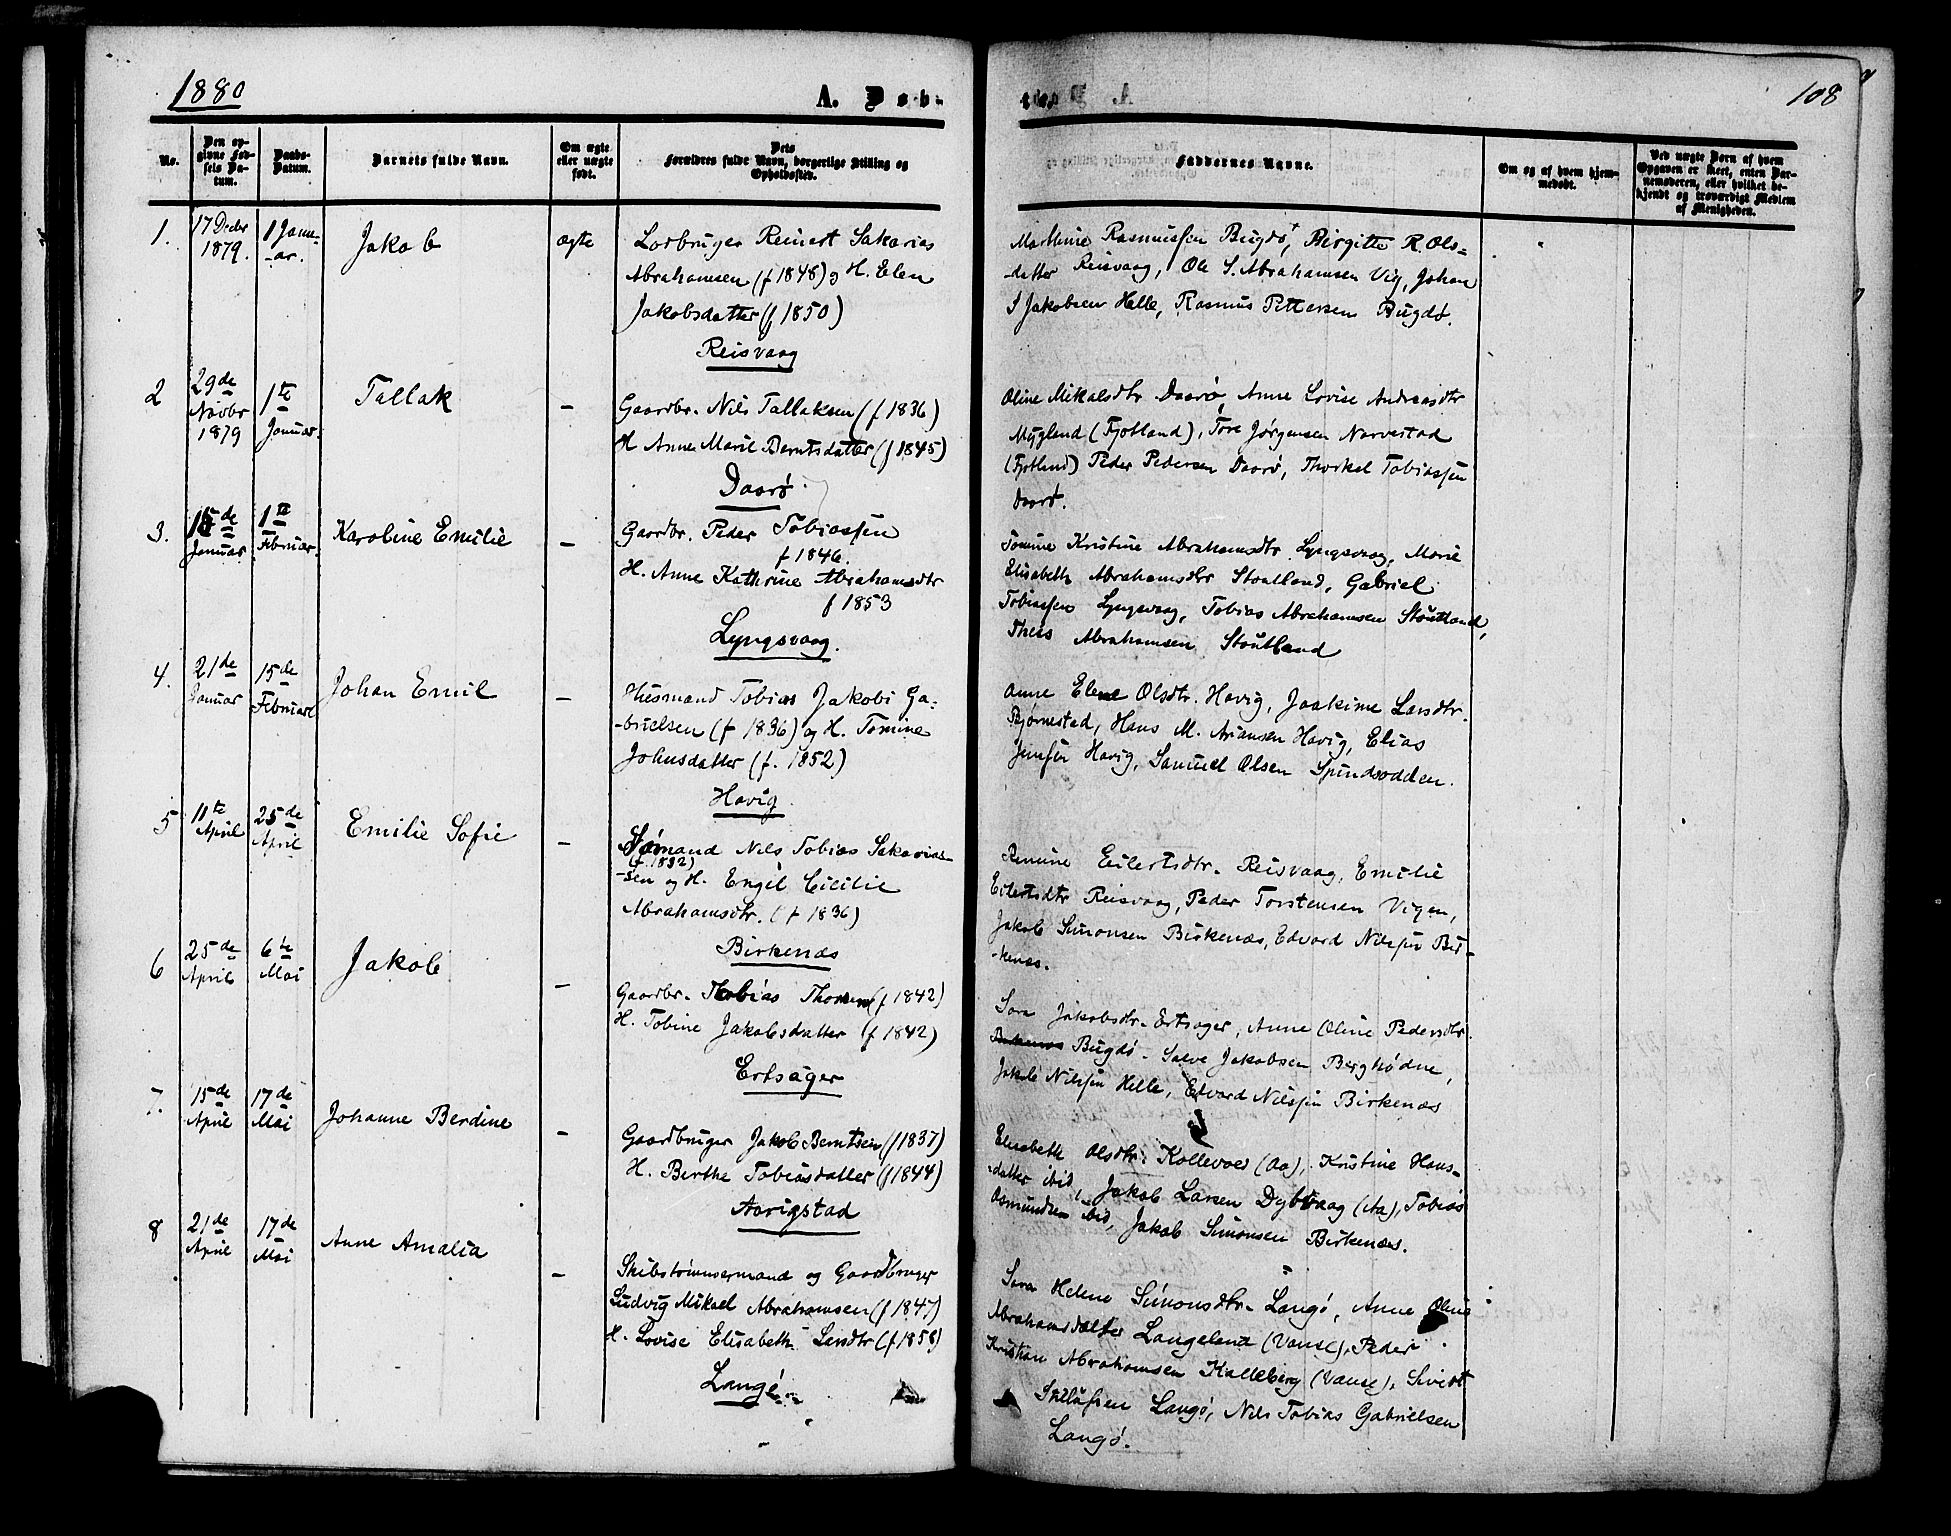 1880
A. Daab.
108
No.
Den opgivne Fødsels Datum.
Daabs-Datum.
Barnets fulde Navn.
Om ægte eller uægte født.
Dets Forældres fulde Navn, borgerlige Stilling og Opholdssted.
Faddernes Navne.
Om og af hvem hjemmedøbt.
Ved uægte Børn af hvem Opgaven er skeet, enten Barnemoderen, eller hvilket bekjendt og troværdigt Medlem af Menigheden.
1.
17 Decbr
1879.
1 Janu-
-ar.
Jakob
ægte
Lodbruger Reinert Sakarias
Abrahamsen (f 1848) og H. Elen
Jakobsdatter (f 1850)
Reisvaag
Marthine Rasmussen Bugdø, Birgitte R. Ols-
-datter Reisvaag, Ole S. Abrahamsen Vig, Johan
S Jakobsen Helle, Rasmus Pettersen Bugdø.
2
29de
Novbr
1879
1te
Januar.
Tallak
–
Gaardbr. Nils Tallaksen (f 1836)
H Anne Marie Berntsdatter (f 1845)
Daarø
Oline Mikalsdtr Daarø, Anne Lovise Andreasdtr
Mygland (Fjotland), Tore Jørgensen Narvestad
(Fjotland) Peder Pedersen Daarø, Thorkel Tobiassen
Daarø.
3.
Januar
1te
Februar
Karoline Emilie
–
Gaardbr. Peder Tobiassen
f 1846.
H. Anne Kathrine Abrahamsdtr
f 1853
Lyngsvaag.
Tomine Kristine Abrahamsdtr Lyngsvaag, Marie
Elisabeth Abrahamsdtr Stoutland, Gabriel
Tobiassen Lyngsvaag, Tobias Abrahamsen Stoutland,
Theis Abrahamsen Stoutland
4.
21de
Januar
15de
Februar
Johan Emil
–
Husmand Tobias Jakobi Ga-
-brielsen (f 1836) og H. Tomine
Johnsdatter (f. 1852)
Havig
Anne Elene Olsdtr. Havig, Joakime Larsdtr.
Bjørnestad, Hans M. Ariansen Havig, Elias
Jensen Havig, Samuel Olsen Spindsodden.
5
11te
April
25de
April
Emilie Sofie
–
Sømand Nils Tobias Sakarias-
(f. 1832)
-sen og H. Engel Cicilie
Abrahamsdtr. (f 1836)
Birkenæs
Eilertsdtr. Reisvaag, Emilie
Eilertsdtr Reisvaag, Peder Torstensen Vigen,
Jakob Simonsen Birkenæs, Edvard Nilssen Bir-
-kenæs.
6
25de
April
6te
Mai
Jakob
–
Gaardbr. Tobias (f 1842)
H. Tobine Jakobsdatter (f 1842)
Ertsåger
Sara Jakobsdtr. Ertsager, Anne Oline Pedersdtr.
Bugdø. Salve Jakobsen Berghødne,
Jakob Nilssen Helle, Edvard Nilssen Birkenæs
7.
15de
April
17de
Mai
Johanne Berdine
–
Gaardbruger Jakob Berntsen (f 1837)
H. Berthe Tobiasdatter (f 1844)
Aarigstad
Elisabeth Olsdtr. Kollevold (Aa), Kristine Hans-
-datter ibid, Jakob Larsen Dybvaag (Aa), Tobias
Osmundsen ibid, Jakob Simonsen Birkenæs.
8
21de
April
17de
Mai
Anne Amalia
–
Skibstømmermand og Gaardbruger
Ludvig Mikael Abrahamsen (f 1847)
H. Lovise Elisabeth Larsdtr (f 1858)
Langø
Sara Helene Simonsdtr. Langø, Anne Oline
Abrahamsdatter Langeland (Vanse), Peder
Kristian Abrahamsen Kalleberg (Vanse), Sivert
Langø, Nils Tobias Gabrielsen
Langø.